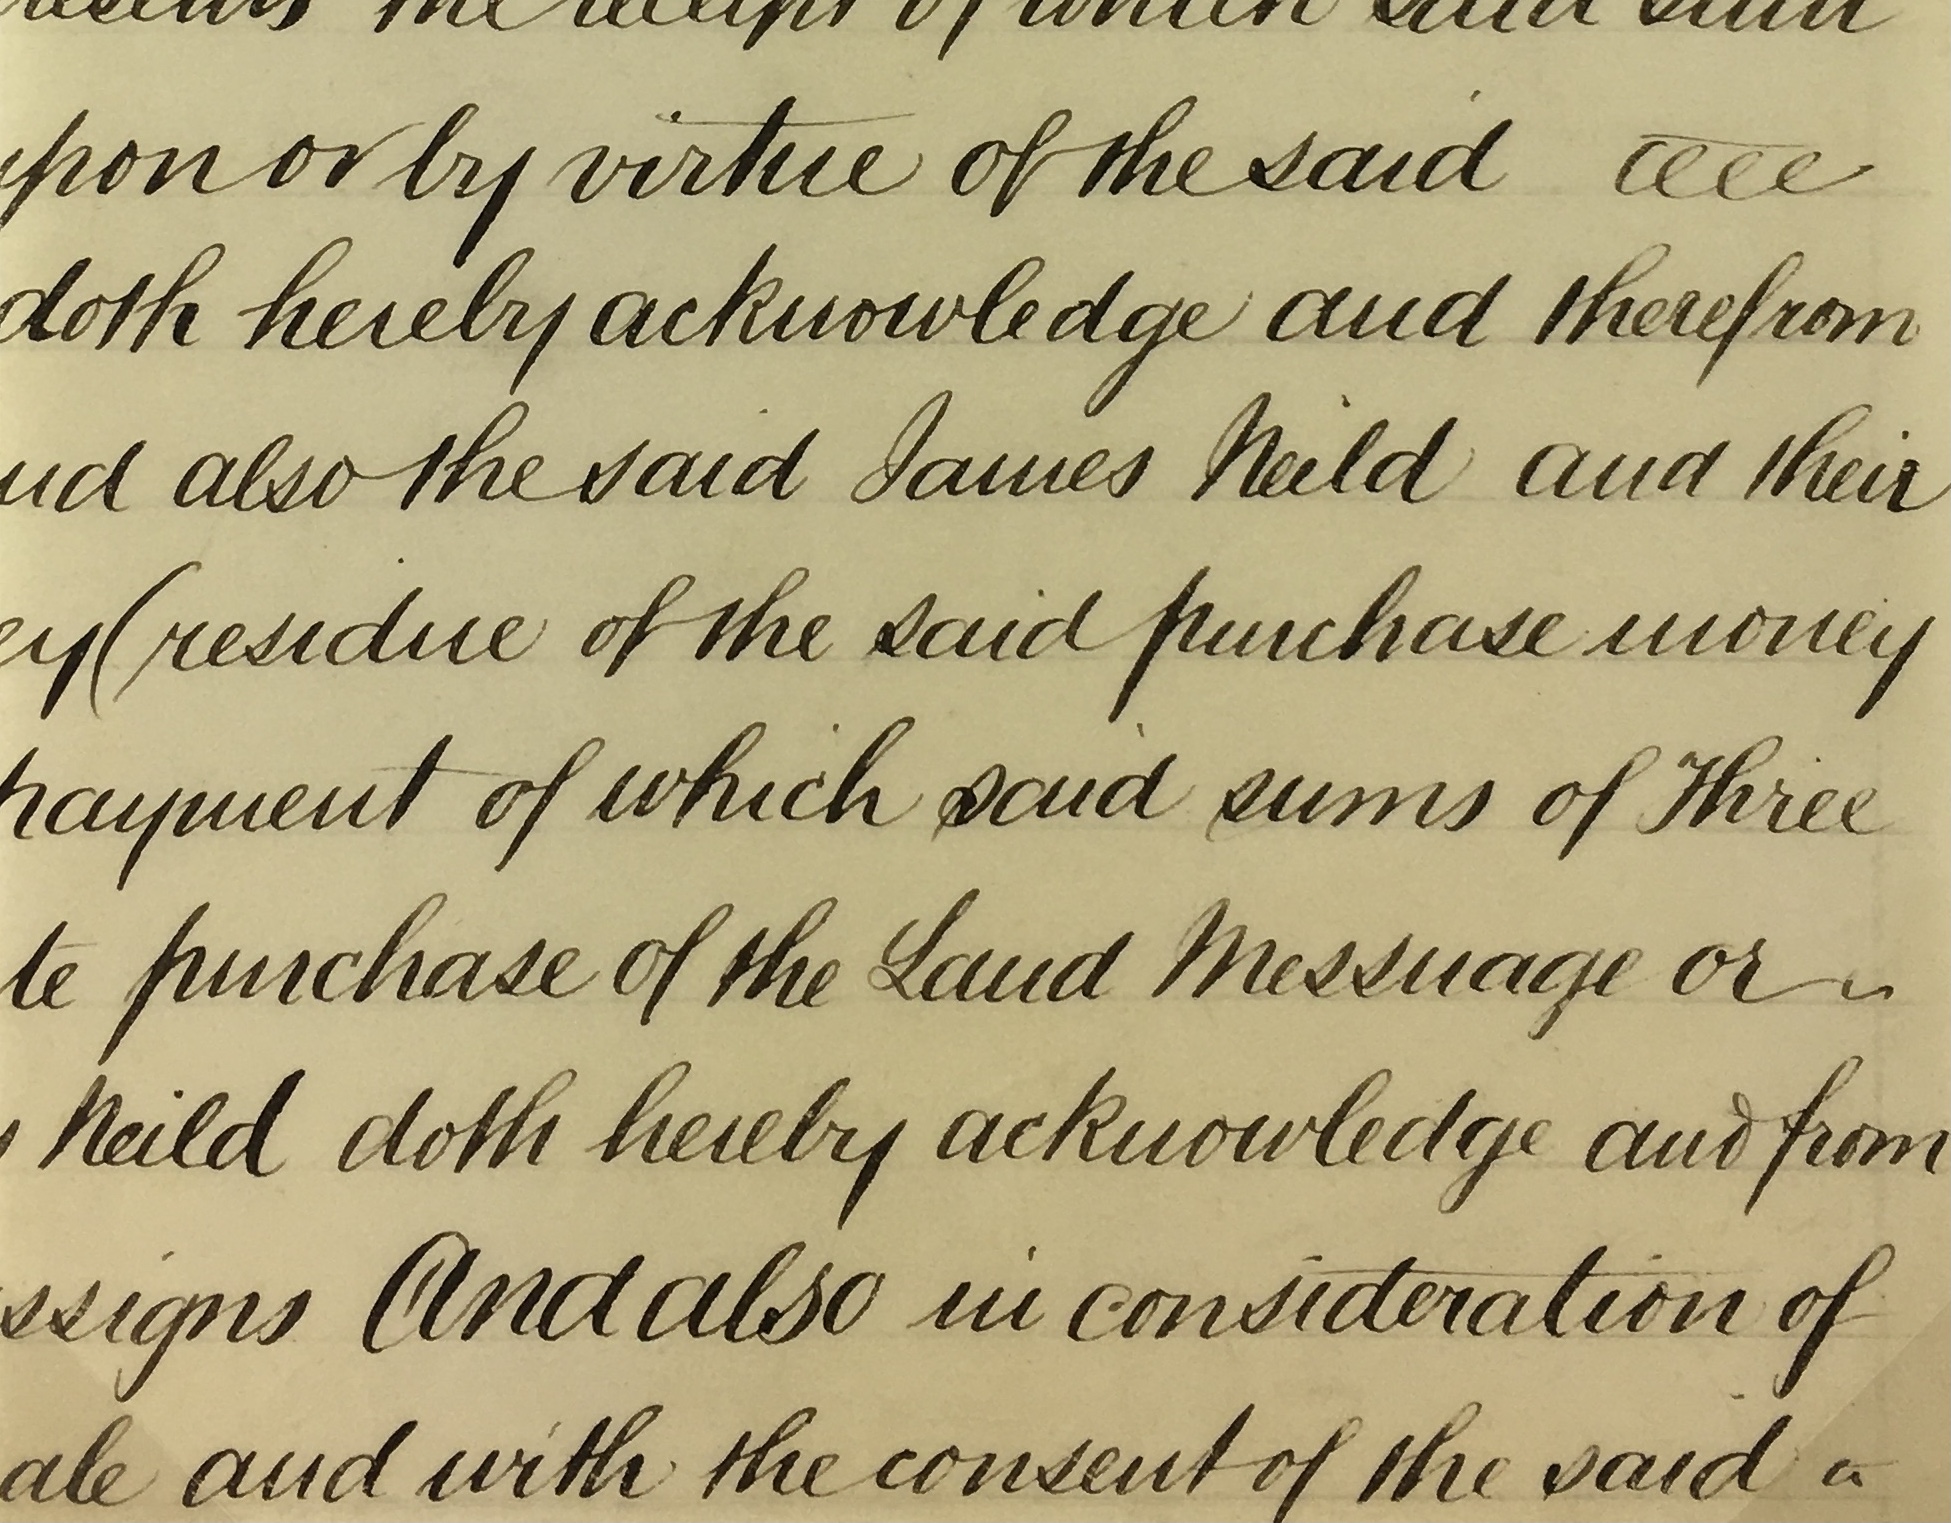 the receipt of which said sum
upon or by virtue of the said
doth hereby acknowledge and therefrom
and also the said James Neild and their
ey (residue of the said purchase money
payment of which said sums of Three
te purchase of the Land Messuage or
Neild doth hereby acknowledge and from
ssigns And also in consideration of
ale and with the consent of the said